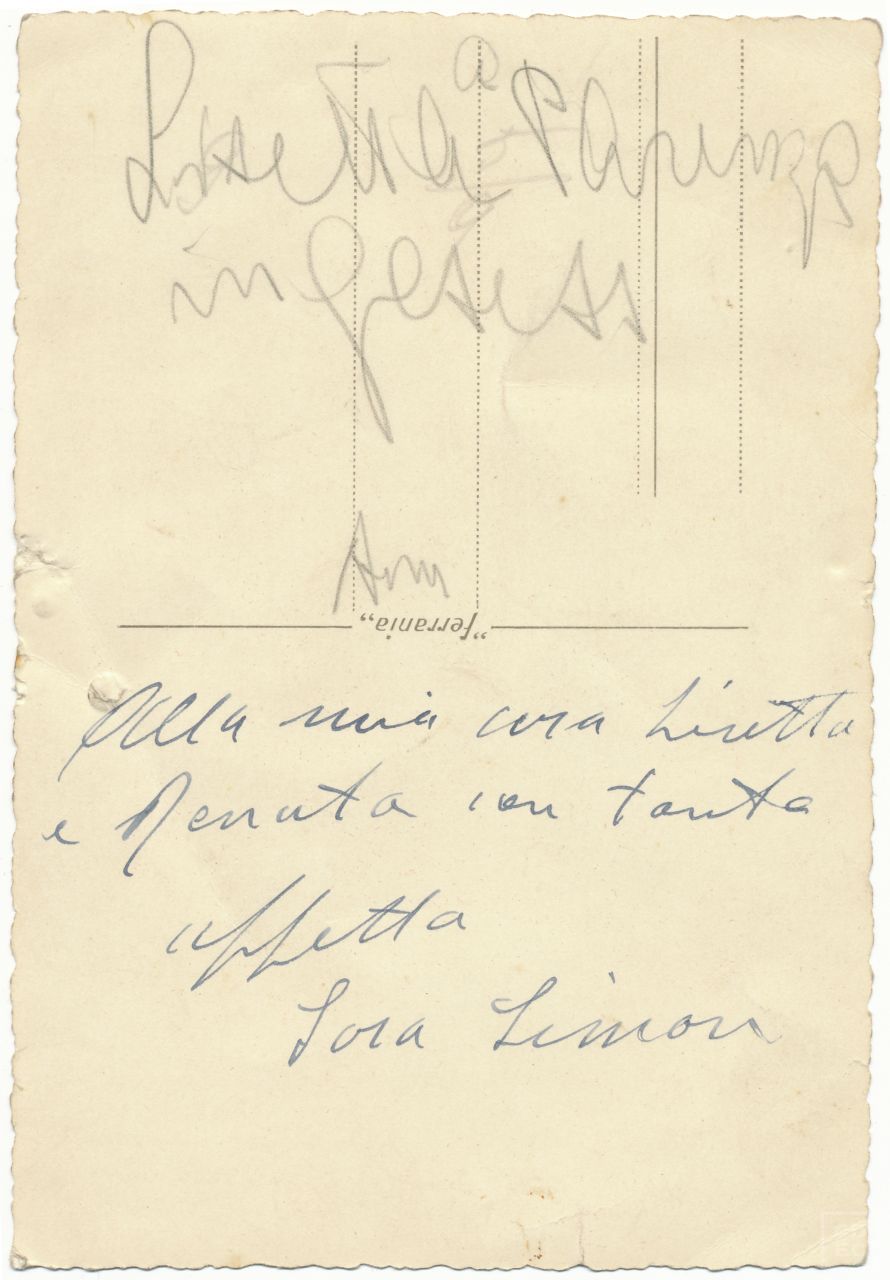 Lisetta a Parenzo
in gesess
Am
"ferrania"
Alla mia cara Lisetta
e Renata con tanta
affetta
Sora Simon